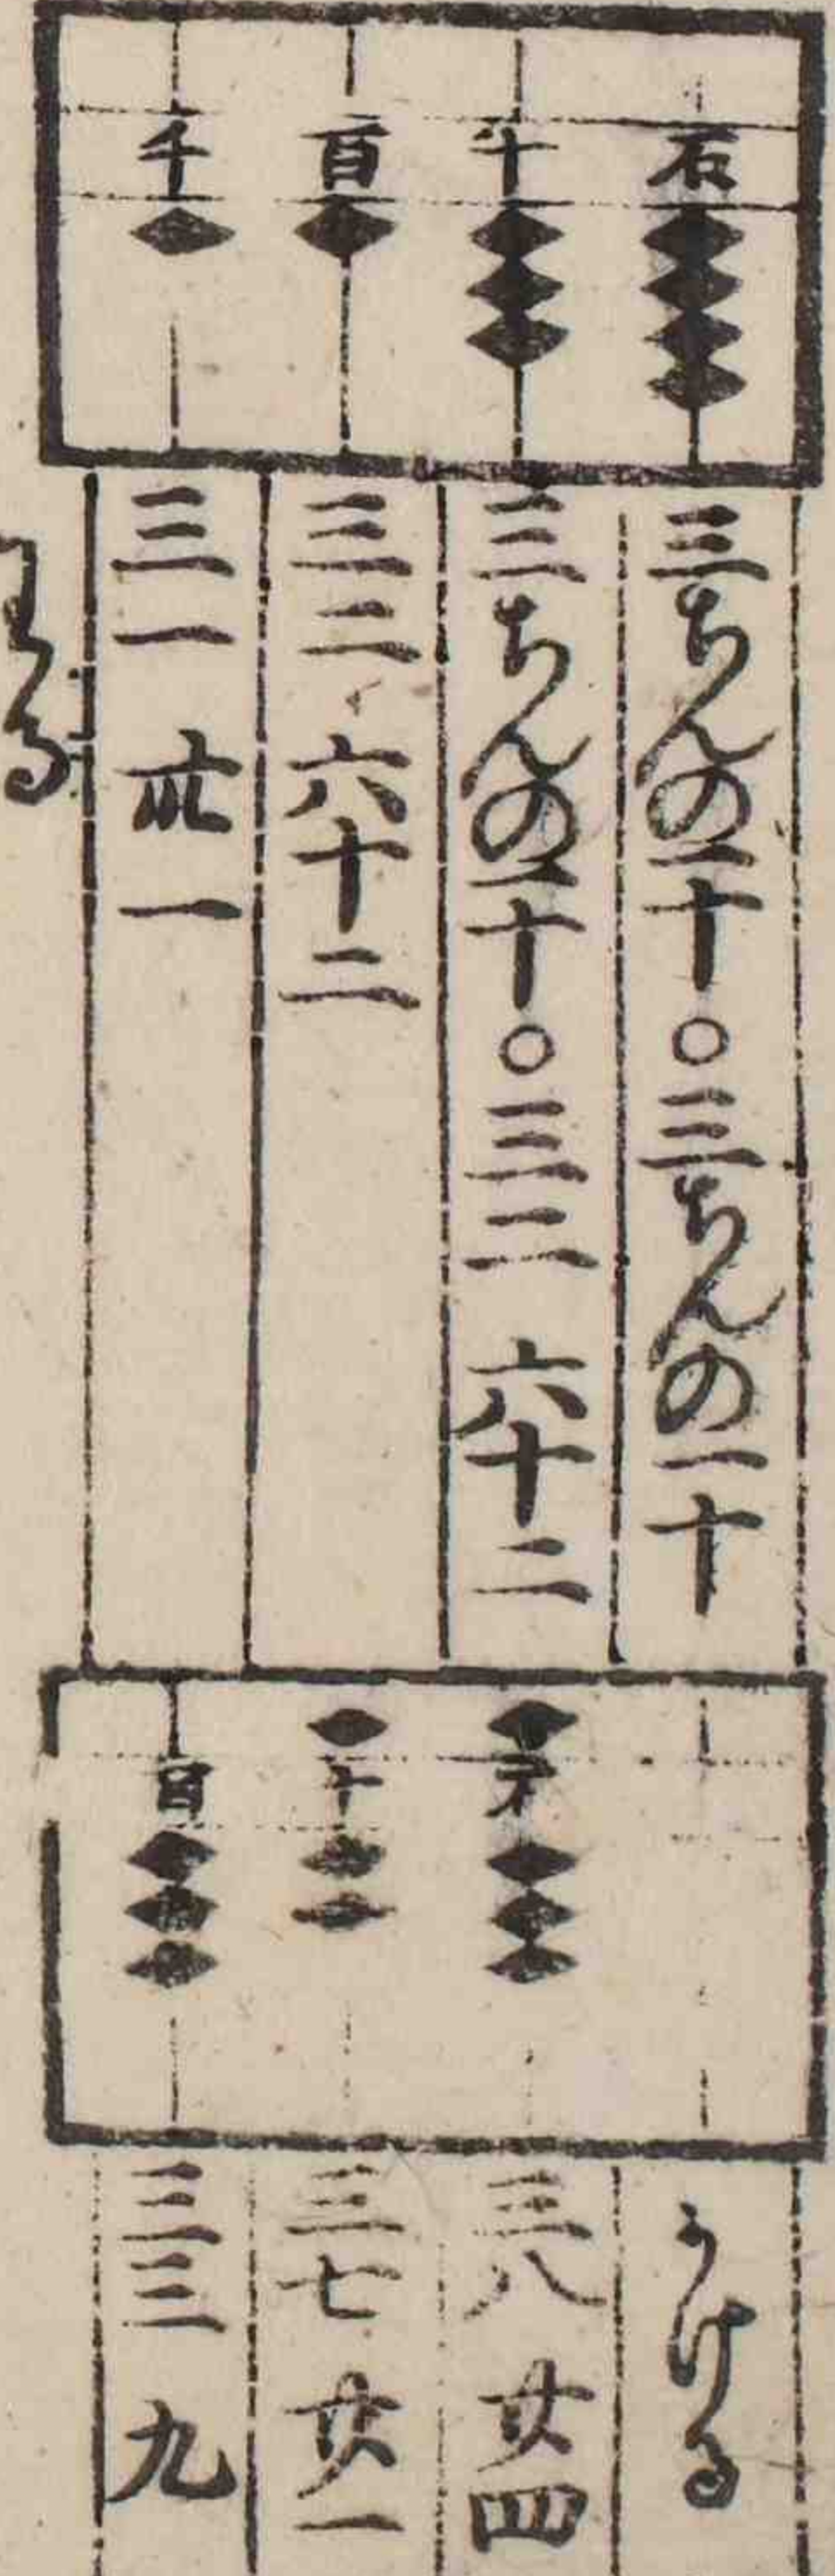 石
十
百
千
三ちんの一十○三ちんの一十
三ちんの一十○三二 六十二
三二 六十二
三一 卅一
わる
十
百
かける
三八 廿四
三七 廿一
三三 九